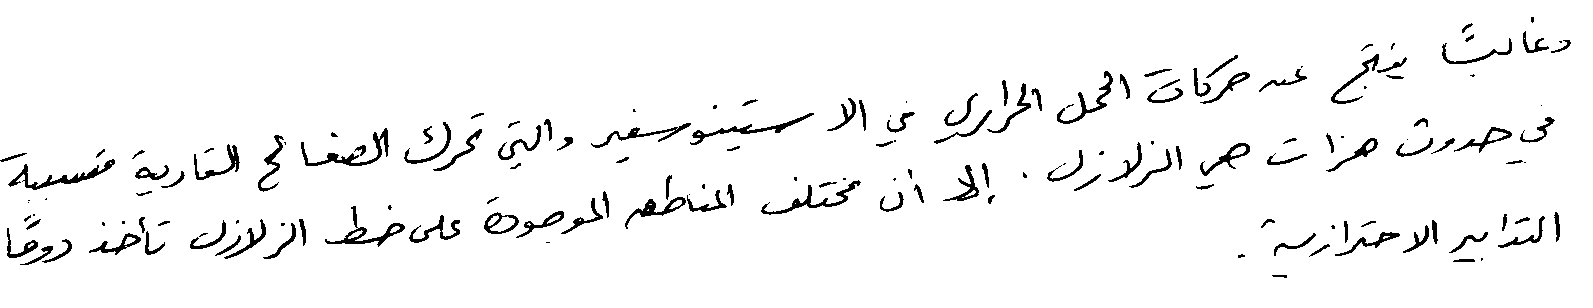 وغالبًا ينتج عن حركات الحمل الحراري في الاستينوسفير والتي تحرك الصفائح القارية متسببة
في حدوث هزات هي الزلازل. إلا أن مختلف المناطق الموجودة على خط الزلازل تأخذ دومًا
التدابير الاحترازية.